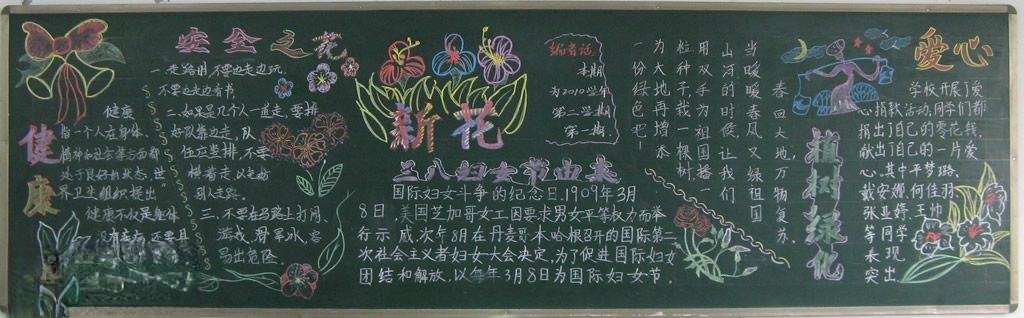 健康
健康
指一个人在身体、
精神和社会等方面都
处于良好的状态,世
界卫生组织提出"
健康不仅是身体
没有疾病,还要具
安全之花
一.走路时不要边走边玩,
不要边走边看书.
二.如果是几个人一道走,要排
好队靠边走,队
伍应竖排,不要
横着走以免妨
碍别人走路.
三.不要在马路上打闹、
游戏,滑旱冰,容
易出危险.
新花
编者话
本期
为2010学年
第二学期
第一期.
三八妇女节由来
国际妇女斗争的纪念日,1909年3月
8日,美国芝加哥女工因要求男女平等权力而举
行示威,次年8月在丹麦哥本哈根召开的国际第二
次社会主义者妇女大会决定,为了促进国际妇女
团结和解放,以每年3月8日为国际妇女节.
植树绿化
春回大地,万物复苏.
当暖暖春风又绿祖国
山河的时候,让我们
用双手为祖国多
植种再我一棵树
为大地增添
一份绿色吧!
爱心
学校开展了爱
心捐款活动,同学们都
捐出了自己的零花钱,
献出了自己的一片爱
心.其中平梦璐、
戴安娜,何佳羽,
张亚婷,王帅
等同学
表现
突出.